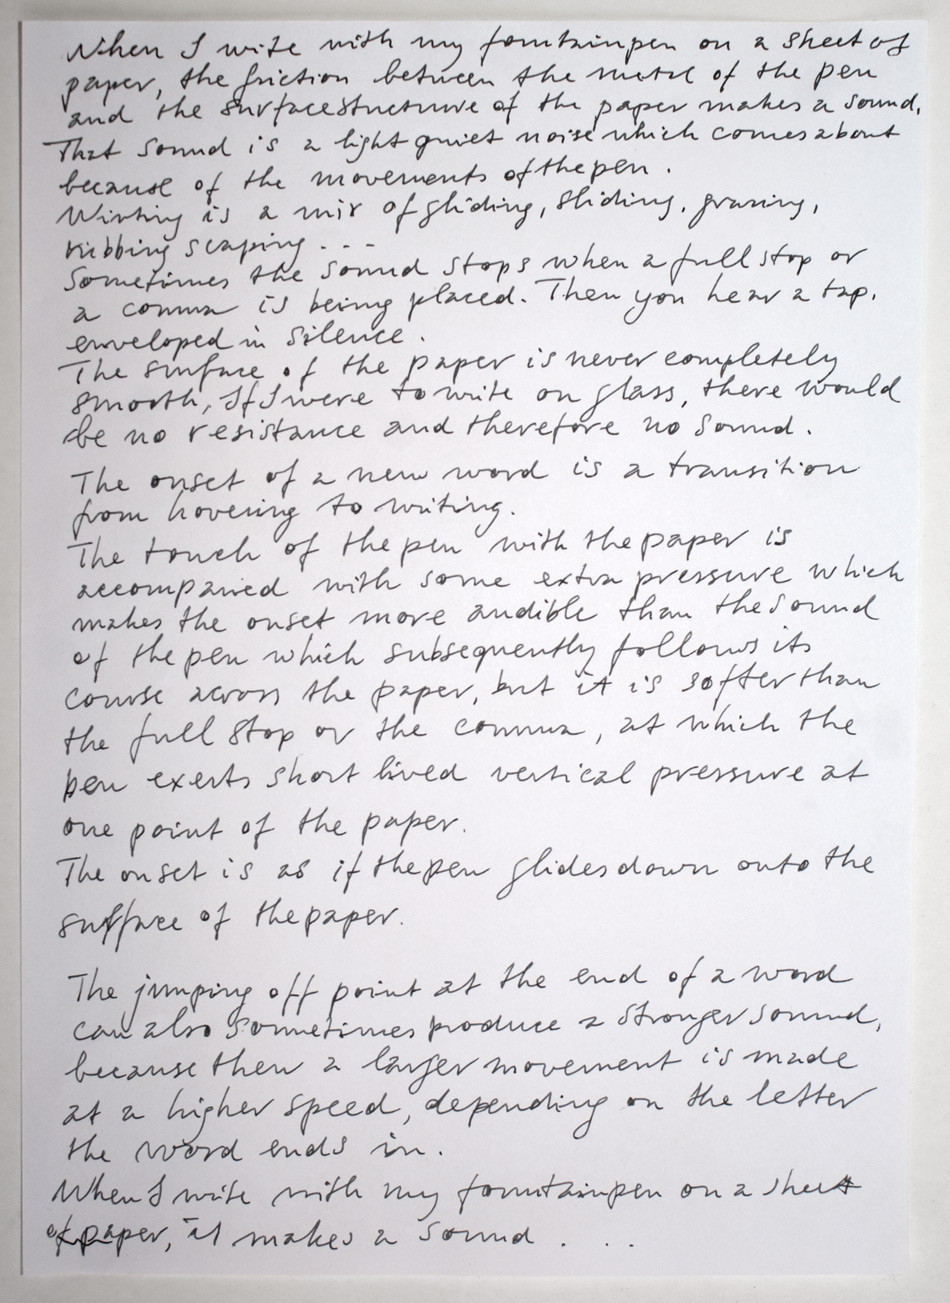 When I write with my fountainpen on a sheet of
paper, the friction between the metal of the pen
and the surfacestructure of the paper makes a sound.
That sound is a light quiet noise which comes about
because of the movements of the pen.
Writing is a mix of gliding, sliding, grazing,
rubbing scaping ...
Sometimes the sound stops when a full stop or
a comma is being placed. Then you hear a tap,
enveloped in silence.
The surface of the paper is never completely
smooth, If I were to write on glass, there would
be no resistance and therefore no sound.
The onset of a new word is a transition
from hovering to writing.
The touch of the pen with the paper is
accompanied with some extra pressure which
makes the onset more audible than the sound
of the pen which subsequently follows its
course across the paper, but it is softer than
the full stop or the comma, at which the
pen exerts short lived vertical pressure at
one point of the paper.
The onset is as if the pen glides down onto the
surface of the paper.
The jumping off point at the end of a word
can also sometimes produce a stronger sound,
because then a larger movement is made
at a higher speed, depending on the letter
the word ends in.
When I write with my fountainpen on a sheet
of paper, it makes a sound . . .